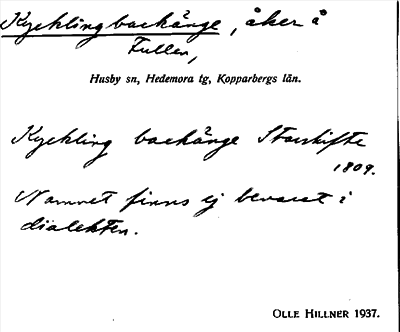 Kycklingbackänge, åker å
Fullen,
Husby sn, Hedemora tg, Kopparbergs län.
Kyckling backänge Storskifte
1809.
Namnet finns ej bevarat i
dialekten.
OLLE HILLNER 1937.